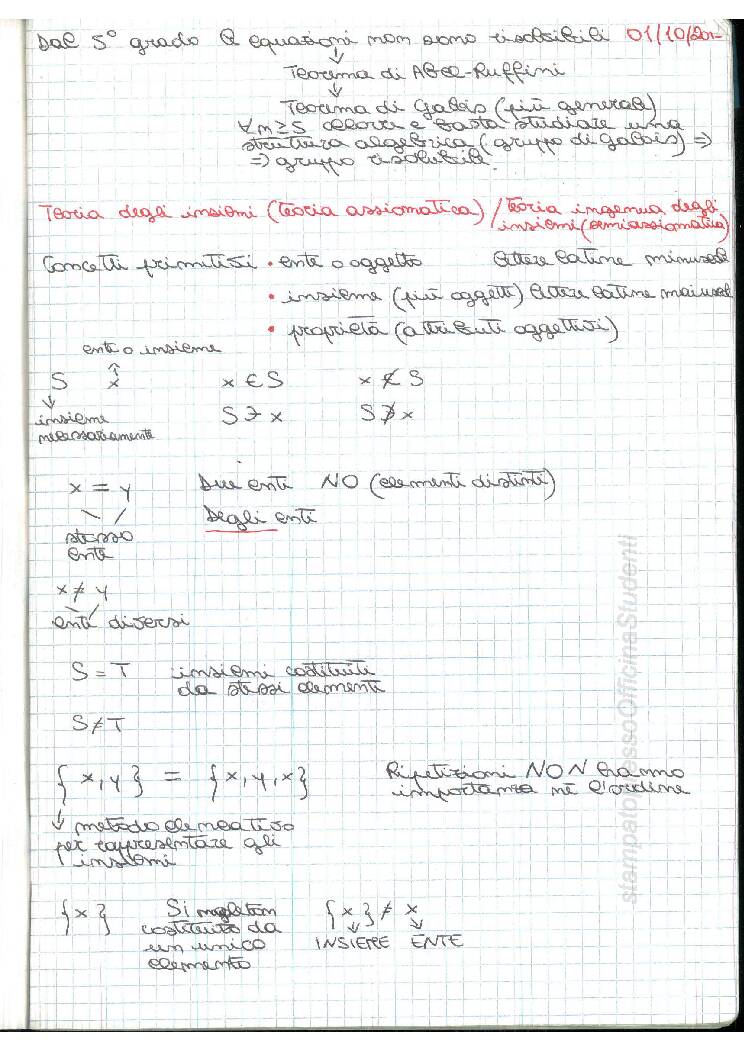 Dal 5° grado le equazioni non sono risolubili 01/10/20
↓
Teorema di Abel-Ruffini
↓
Teorema di Galois (più generale)
∀n≥5 allora e basta studiare una
struttura algebrica (gruppo di Galois) ⇒
⇒ gruppo risolubile.
Teoria degli insiemi (teoria assiomatica) / teoria ingenua degli
insiemi (semiassiomatica)
Concetti primitivi • ente o oggetto lettere latine minuscol
• insieme (più oggetti) lettere latine maiuscol
• proprietà (attributi oggettivi)
ente o insieme
S x x ∈ S x ∉ S
↓
insieme S ∋ x S ∌ x
necessariamente
x = y Due enti NO (elementi distinti)
stesso Degli enti
ente
x ≠ y
enti diversi
S = T insiemi costituiti
da stessi elementi
S ≠ T
{x,y} = {x,y,x} Ripetizioni NON hanno
importanza né l'ordine
↓ metodo elencativo
per rappresentare gli
insiemi
{x} Singleton {x} ≠ x
costituito da ↓ ↓
un unico INSIEME ENTE
elemento
stampatopressoOfficinaStudenti